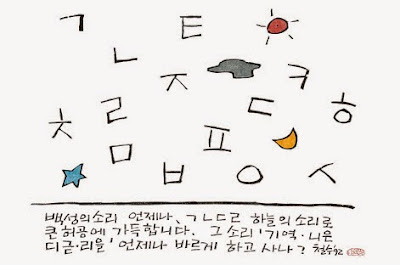 ㄱ ㅌ
ㄴ ㅈ ㅋ
ㅊ ㄹ ㄷ ㅎ
ㅍ
ㅁ ㅂ ㅇ ㅅ
백성의소리 언제나, ㄱㄴㄷㄹ 하늘의 소리로
큰 허공에 가득합니다. 그 소리 '기역·니은
디귿·리을' 언제나 바르게 하고 사나? 철수